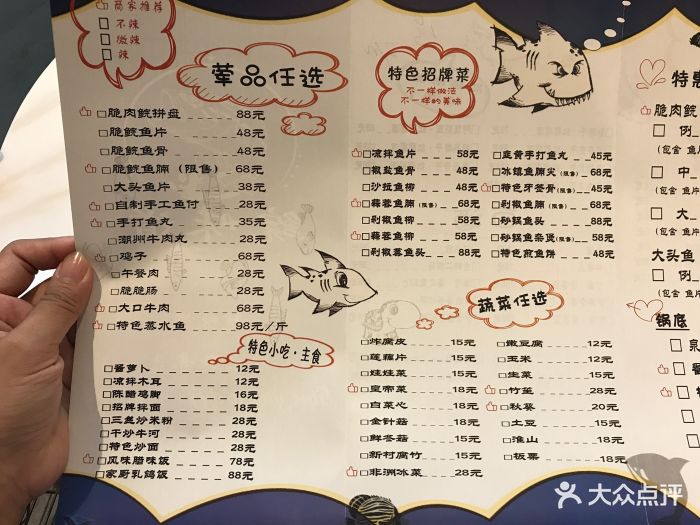 商家推荐
不辣
微辣
辣
荤品任选
脆肉鲩拼盘 88元
脆鲩鱼片 48元
脆鲩鱼骨 48元
脆鲩鱼腩(限售) 68元
大头鱼片 38元
自制手工鱼付 28元
手打鱼丸 35元
潮州牛肉丸 28元
鸡子 68元
午餐肉 28元
脆脆肠 28元
大口牛肉 68元
特色蒸水鱼 98元/斤
特色小吃·主食
酱萝卜 12元
凉拌木耳 12元
陈醋鸡脚 16元
招牌拌面 18元
三丝炒米粉 28元
干炒牛河 28元
特色炒面 28元
风味腊味饭 78元
家厨乳鸽饭 88元
特色招牌菜
不一样做法
不一样的美味
凉拌鱼片 58元
椒盐鱼骨 48元
沙拉鱼柳 48元
蒜蓉鱼腩(限售) 68元
剁椒鱼柳 48元
蒜蓉鱼柳 58元
剁椒蓉鱼头 88元
豉黄手打鱼丸 45元
冰镇鱼腩尖(限售) 68元
特色牙签骨(限售) 45元
剁椒鱼腩(限售) 68元
砂锅鱼头 88元
砂锅鱼杂煲(限售) 68元
特色煎鱼饼 48元
蔬菜任选
炸腐皮 15元
莲藕片 15元
娃娃菜 15元
皇帝菜 18元
白菜心 12元
金针菇 18元
鲜冬菇 15元
新村腐竹 15元
非洲冰菜 28元
嫩豆腐 12元
玉米 12元
生菜 15元
竹笙 18元
秋葵 20元
土豆 15元
淮山 18元
板栗 18元
特惠
脆肉鲩
例
(包含 鱼片
中
(包含 鱼片
大
(包含 鱼片
大头鱼
例
(包含 鱼
锅底
大众点评